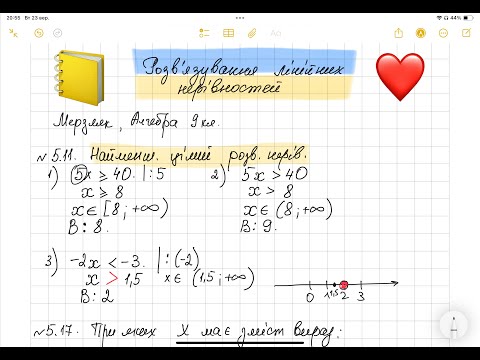 20:55 Вт 23 вер.
44%
Розв'язування лінійних
нерівностей
Мерзляк, Алгебра 9 кл.
№5.11. Найменш. цілий розв. нерів.
1) 5x ⩾ 40. |:5
x ⩾ 8
x ∈ [8; +∞)
В: 8.
2) 5x > 40
x > 8
x ∈ (8; +∞)
В: 9.
3) -2x < -3. |:(-2)
x > 1,5 x ∈ (1,5; +∞)
В: 2
0 1 1,5 2 3
№5.17. При яких x має зміст вираз: